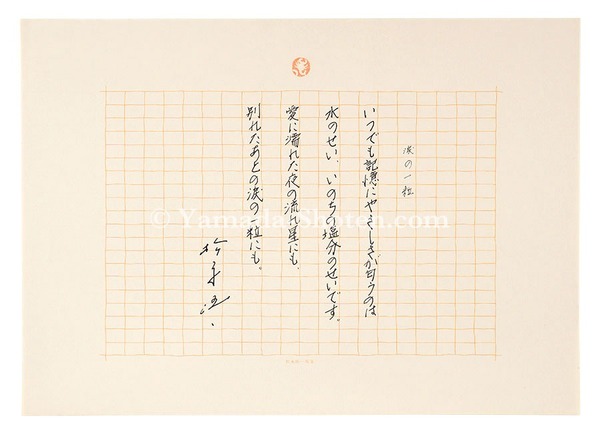 涙の一粒
いつでも記憶にやさしさが匂うのは
水のせい、いのちの塩分のせいです。
愛に濡れた夜の流れ星にも、
別れたあとの涙の一粒にも。
© YamadaShoten.com